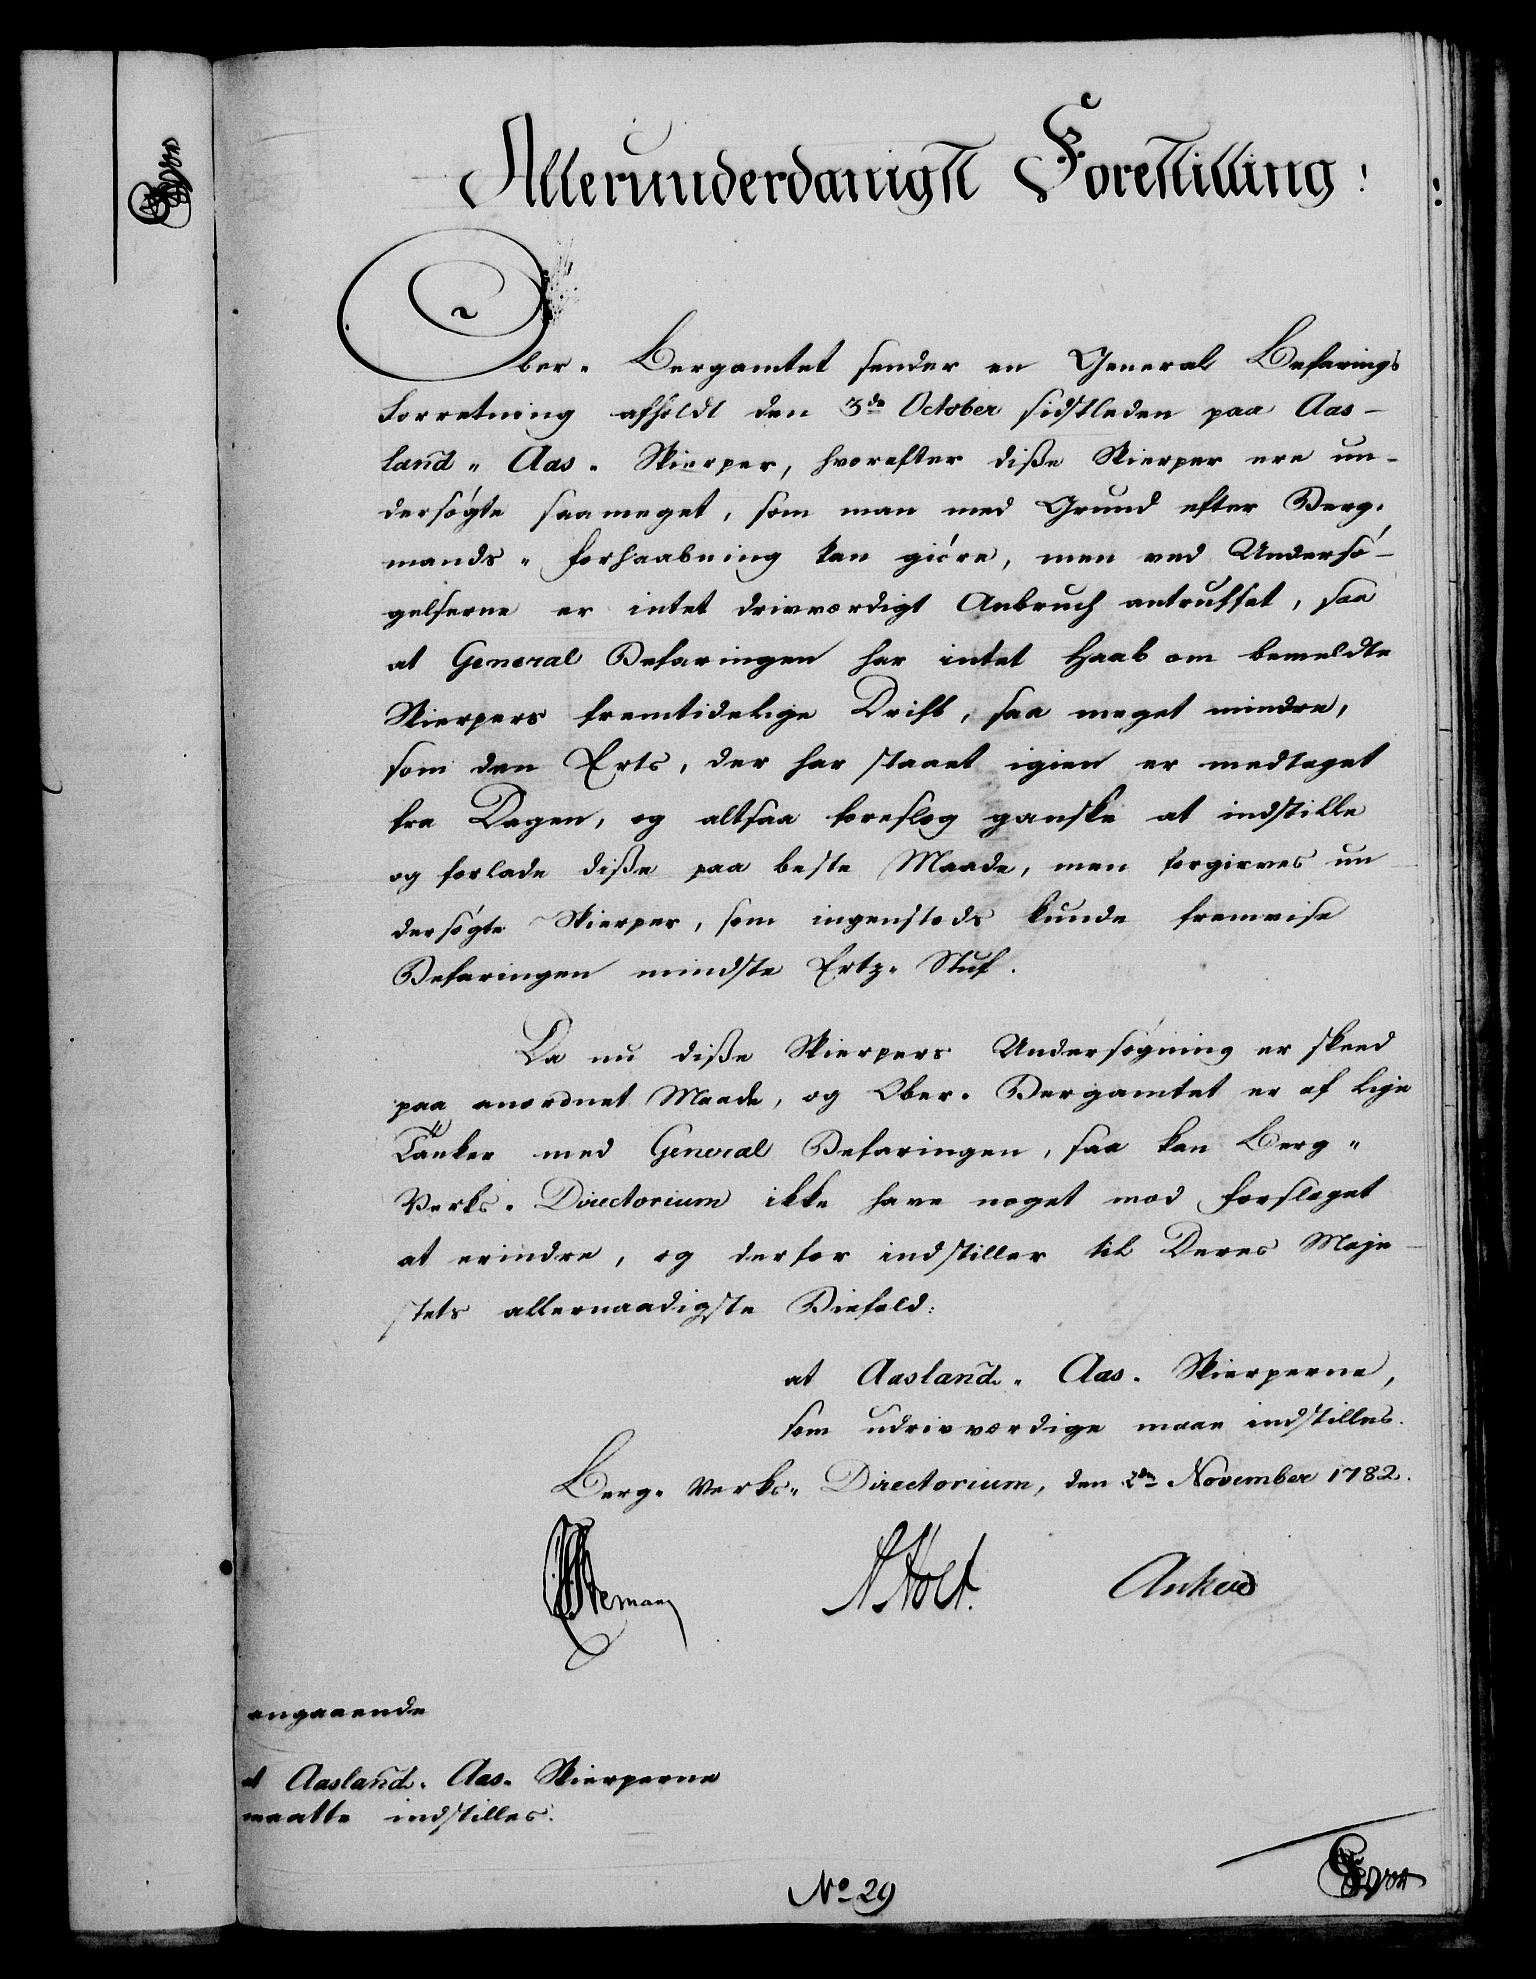 Allerunderdanigst Forestilling:
Ober-Bergamtet sender en General Befarings
Forretning afholdt den 3de October sidstleden paa Aas-
land- Aas- Skierper, hvorefter disse Skierper ere un-
dersøgte saameget, som man med Grund efter Berg-
mands-forhaabning kan giøre, men ved Undersø-
gelserne er intet drivværdigt Anbruch antruffet, saa
at General Befaringen har intet Haab om bemeldte
Skierpers fremtidelige Drift, saa meget mindre,
som den Erts, der har staaet igien er medtaget
fra Dagen, og altsaa foreslog ganske at indstille
og forlade disse paa beste Maade, men forgieves un
dersøgte Skierper, som ingensteds kunde fremvise
Befaringen mindste Ertz-Stuf.
Da nu disse Skierpers Undersøgning er skeed
paa anordnet Maade, og Ober-Bergamtet er af lige
Tanker med General Befaringen, saa kan Berg-
Verks-Directorium ikke have noget mod forslaget
at erindre, og derfor indstiller til Deres Maje-
stets allernaadigste Biefald:
at Aasland-Aas-Skierperne,
som udrivværdige maae indstilles.
Berg-Verks-Directorium, den 2den November 1782.
Stemann
Holt.
Anker
angaaende
at Aasland-Aas-Skierperne
maatte indstilles.
No 29